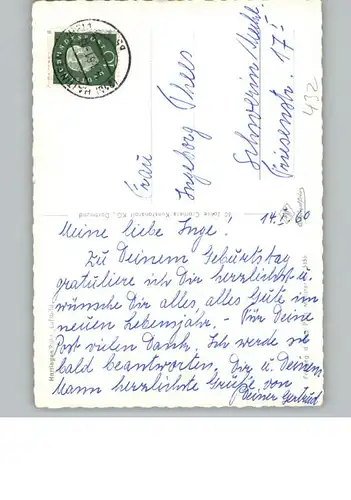 Frau
Ingeborg Thees
Schwerin
Friesenstr. 17 I
432
14. 1. 60
Meine liebe Inge!
Zu Deinem Geburtstag
gratuliere ich Dir herzlichst u.
wünsche Dir alles alles Gute im
neuen Lebensjahr. – Für Deine
Post vielen Dank. Ich werde sie
bald beantworten. Dir u. Deinem
Mann herzlichste Grüße von
Deiner Gertrud
Cramers Kunstanstalt KG, Dortmund